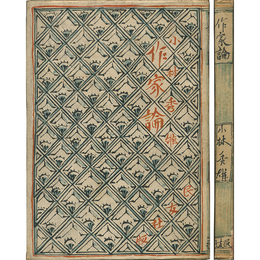 小林秀雄
作家論
作家論
小林秀雄